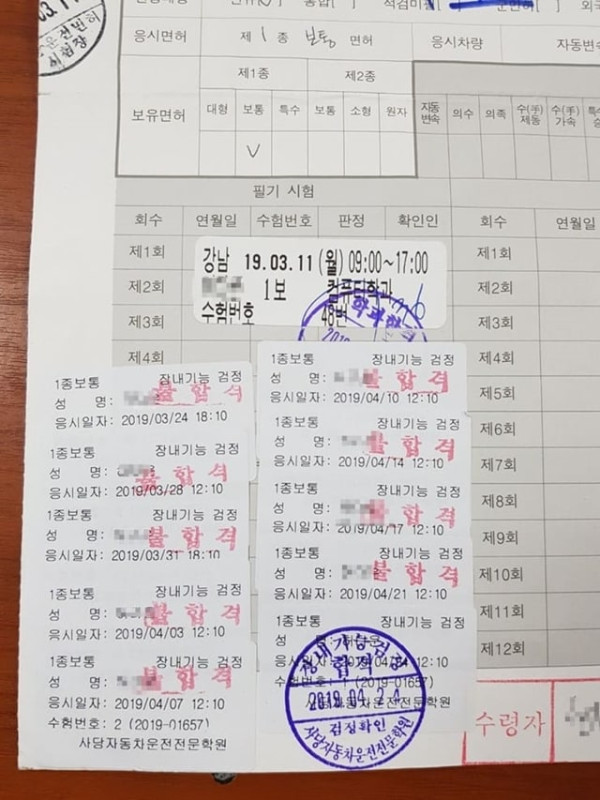 03.11
운전면허
시험장
응시면허 제 1 종 보통 면허 응시차량 자동변속
제1종 제2종
보유면허 대형 보통 특수 보통 소형 원자 자동변속 의수 의족 수(手)제동 수(手)가속
V
필기 시험
회수 연월일 수험번호 판정 확인인 회수 연월일
제1회 제1회
강남 19.03.11 (월) 09:00~17:00
제2회 1보 컴퓨터학과
제3회 수험번호 48번 제3회
제4회 제4회
제5회
제6회
제7회
제8회
제9회
제10회
제11회
제12회
1종보통 장내기능 검정
성 명: 불합격
응시일자: 2019/03/24 18:10
1종보통 장내기능 검정
성 명: 불합격
응시일자: 2019/03/28 12:10
1종보통 장내기능 검정
성 명: 불합격
응시일자: 2019/03/31 18:10
1종보통 장내기능 검정
성 명: 불합격
응시일자: 2019/04/03 12:10
1종보통 장내기능 검정
성 명: 불합격
응시일자: 2019/04/07 12:10
수험번호: 2 (2019-01657)
사당자동차운전전문학원
1종보통 장내기능 검정
성 명: 불합격
응시일자: 2019/04/10 12:10
1종보통 장내기능 검정
성 명: 불합격
응시일자: 2019/04/14 12:10
1종보통 장내기능 검정
성 명: 불합격
응시일자: 2019/04/17 12:10
1종보통 장내기능 검정
성 명: 불합격
응시일자: 2019/04/21 12:10
1종보통 장내기능 검정
성 명:
응시일자: 2019/04/24 12:10
수험번호: 1 (2019-01657)
사당자동차운전전문학원
장내기능검정
합격
2019.04.24
검정확인
사당자동차운전전문학원
수령자